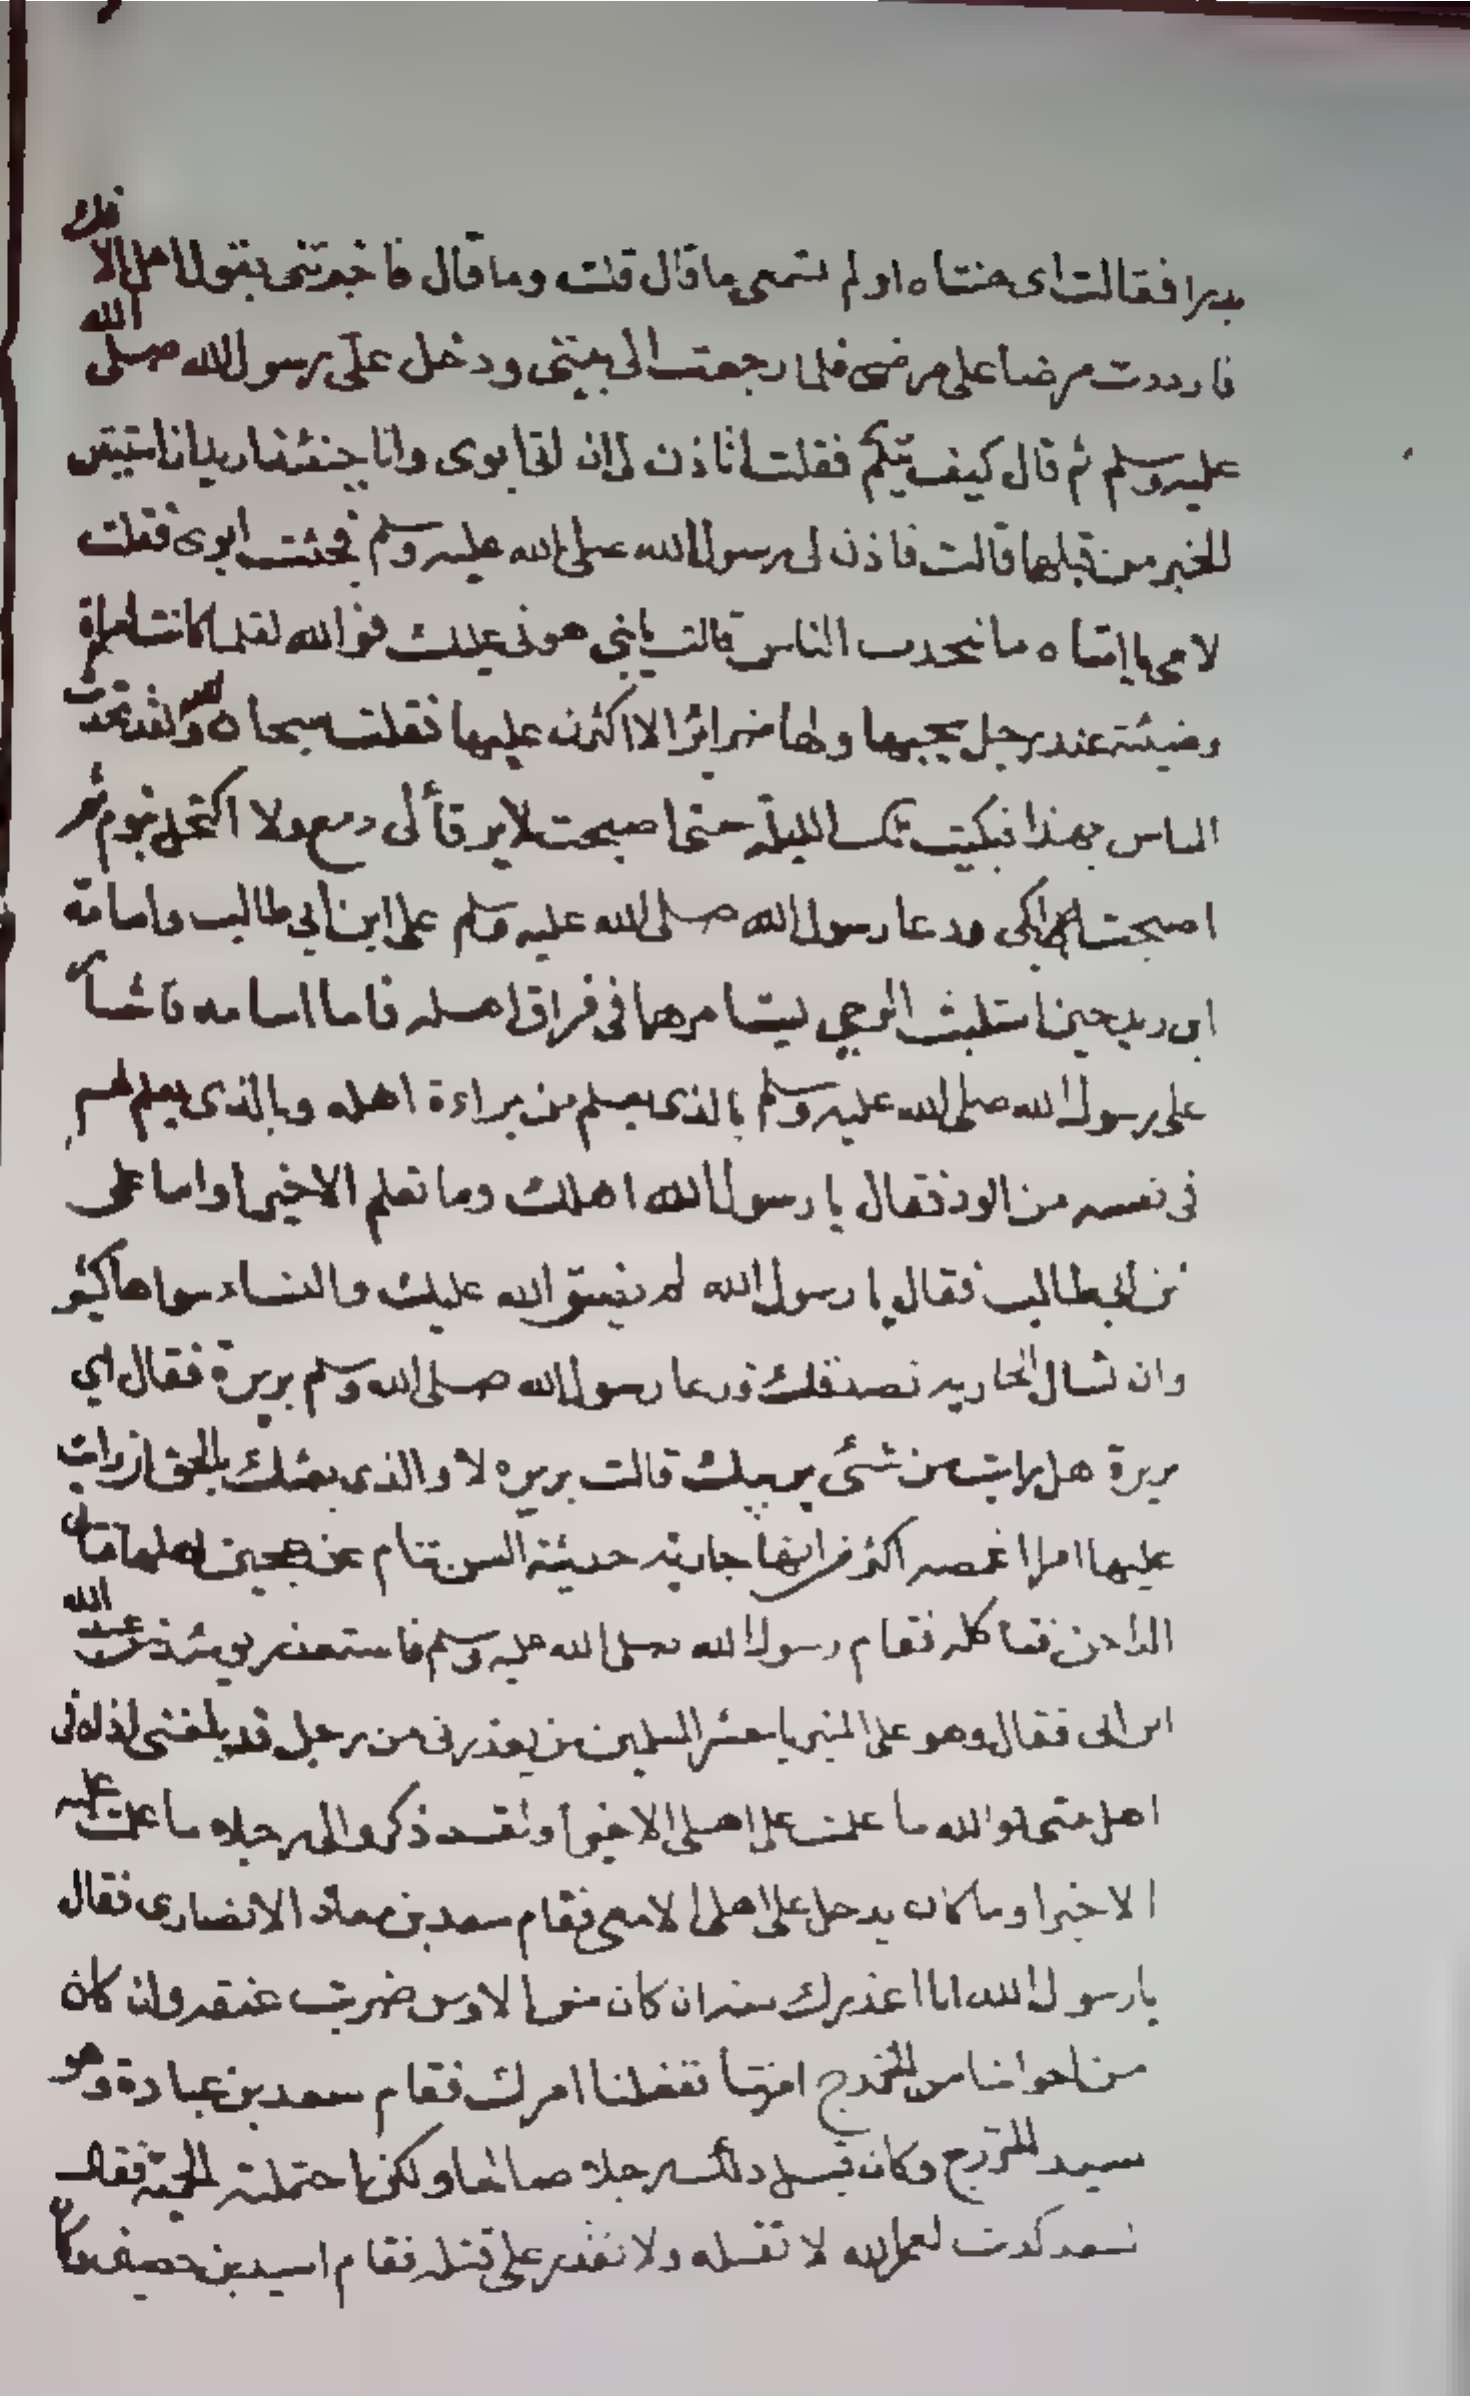 بدرا فقالت اى هنتاه اولم تسمعى ما قال قلت وما قال فاخبرتنى بقول اهل الافك
فازددت مرضا على مرضى فلما رجعت الى بيتى ودخل علىّ رسول الله صلى الله
عليه وسلم ثم قال كيف تيكم فقلت اتاذن لى ان اتى ابوى وانا حينئذ اريد ان استيقن
الخبر من قبلهما قالت فاذن لى رسول الله صلى الله عليه وسلم فجئت ابوى فقلت
لامى يا امتاه ما يتحدث الناس قالت يابنى هونى عليك فوالله لقلما كانت امراة
وضيئة عند رجل يحبها ولها ضرائر الا اكثرن عليها فقلت سبحان الله ولقد تحدث
الناس بهذا فبكيت تلك الليلة حتى اصبحت لا يرقأ لى دمع ولا اكتحل بنوم ثم
اصبحت ابكى ودعا رسول الله صلى الله عليه وسلم على ابن ابي طالب واسامة
ابن زيد حين استلبث الوحي ليستامرهما فى فراق اهله فاما اسامه فاشار
على رسول الله صلى الله عليه وسلم بالذى يعلم من براءة اهله وبالذى يعلم لهم
فى نفسه من الود فقال يا رسول الله اهلك وما نعلم الا خيرا واما على
بن ابى طالب فقال يا رسول الله لم يضيق الله عليك والنساء سواها كثير
وان تسال الجاريه تصدقك فدعا رسول الله صلى الله وسلم بريرة فقال اي
بريرة هل رايت من شئ يريبك قالت بريره لا والذى بعثك بالحق ان رايت
عليها امرا اغمصه اكثر من انها جاريه حديثة السن تنام عن عجين اهلها فتاتى
الداجن فتاكله فقام رسول الله صلى الله عليه وسلم فاستعذر يومئذ من عبد الله
ابن ابى فقال وهو على المنبر يا معشر المسلمين من يعذرنى من رجل قد بلغنى اذاه فى
اهل بيتى فوالله ما علمت على اهلى الا خيرا ولقد ذكروا لى رجلا ما علمت عليه
الا خيرا وما كان يدخل على اهلى الا معى فقام سعد بن معاذ الانصارى فقال
يا رسول الله انا اعذرك منه ان كان من الاوس ضربت عنقه وان كان
من اخواننا من الخزرج امرتنا ففعلنا امرك فقام سعد بن عبادة وهو
سيد الخزرج وكان قبل ذلك رجلا صالحا ولكن احتملته الحمية فقال
لسعد كذبت لعمر الله لا تقتله ولا تقدر على قتله فقام اسيد بن حصيف